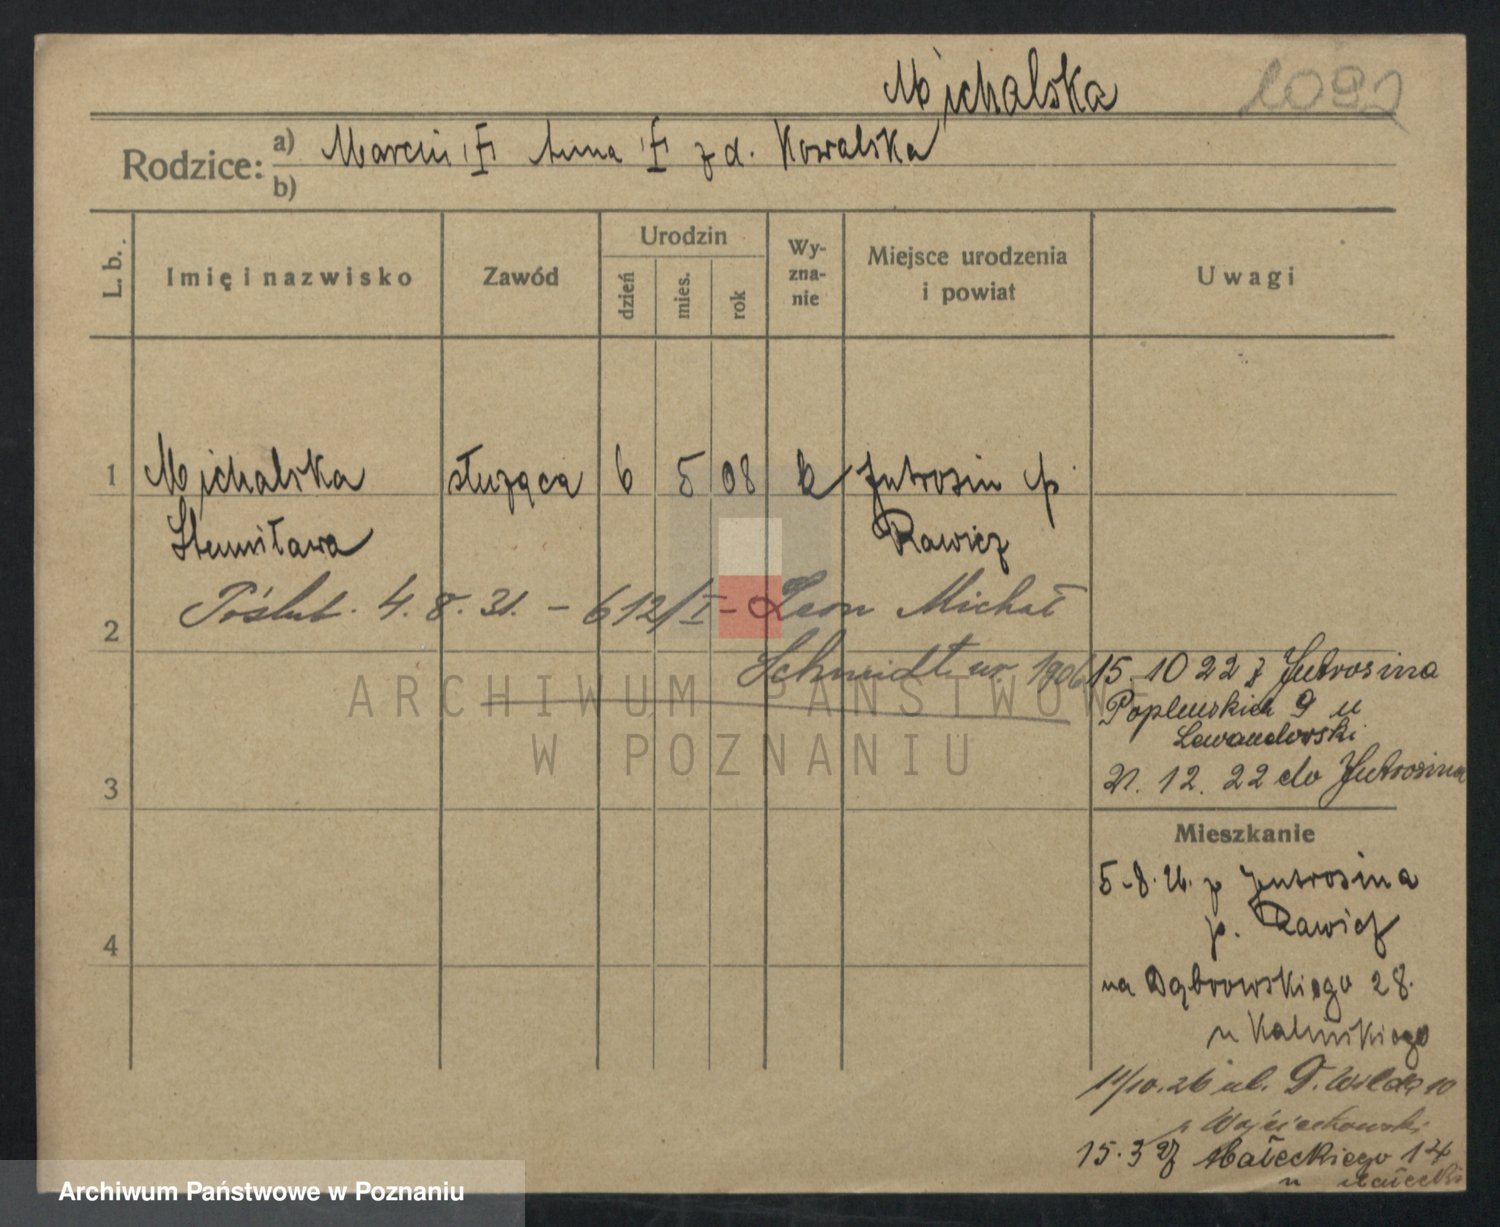 Michalska
1092
Rodzice: a) Marcin, Anna z d. Kowalska
b)
L. b.
Imię i nazwisko
Zawód
Urodzin
dzień
mies.
rok
Wy-
zna-
nie
Miejsce urodzenia
i powiat
Uwagi
1 Michalska służąca 6 5 08 k Jutrosin p.
Stanisława Rawicz
Poślub. 4. 8. 31. - 612/I - Leon Michał
2
Schmidt ur. 1906
15. 10 22 z Jutrosina
Poplińskich 9 u
Lewandowski
21. 12. 22 do Jutrosina
3
Mieszkanie
5.8.26. z Jutrosina
p. Rawicz
4
na Dąbrowskiego 28.
u Kalińskiego
11/10.26 ul. G. Wilda 10
u Wojciechowski
15.3 27 Małeckiego 14
u Małecki
ARCHIWUM PAŃSTWOWE
W POZNANIU
Archiwum Państwowe w Poznaniu